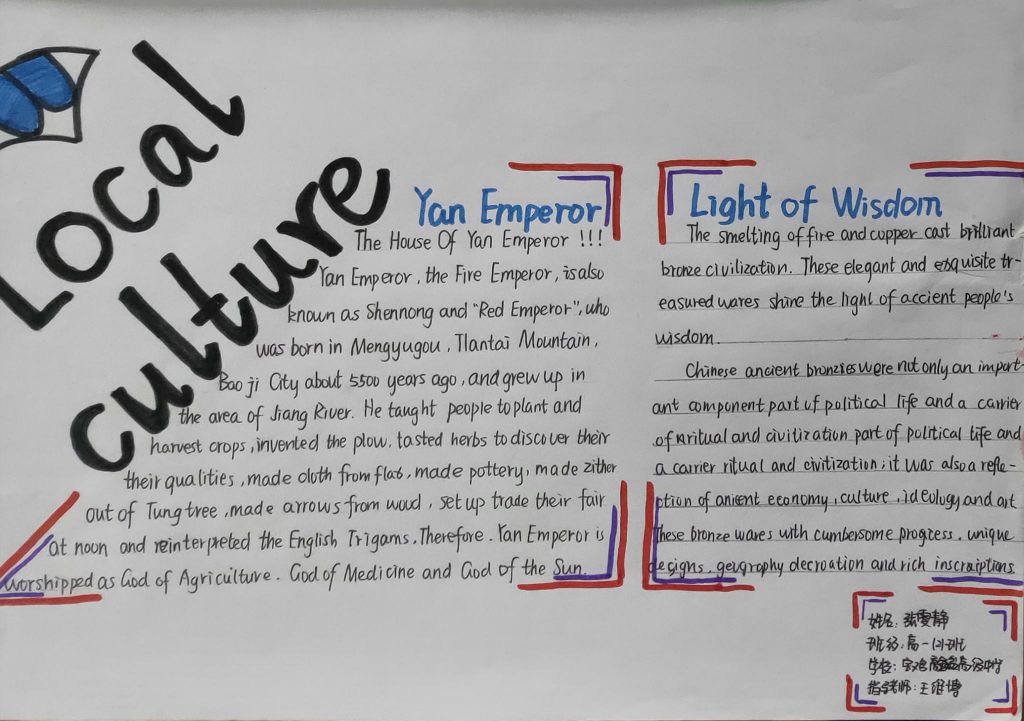 Local
culture
Yan Emperor
The House Of Yan Emperor !!!
Yan Emperor, the Fire Emperor, is also
known as Shennong and "Red Emperor", who
was born in Mengyugou, Tlantai Mountain,
Bao ji City about 5500 years ago, and grew up in
the area of Jiang River. He taught people to plant and
harvest crops, invented the plow, tasted herbs to discover their
their qualities, made cloth from flab, made pottery, made zither
out of Tung tree, made arrows from wood, set up trade their fair
at noon and reinterpreted the English Trigams. Therefore. Yan Emperor is
worshipped as God of Agriculture. God of Medicine and God of the Sun.
Light of Wisdom
The smelting of fire and cupper cast brilliant
bronze civilization. These elegant and exquisite tr-
easured wares shine the light of accient people's
wisdom.
Chinese ancient bronzies were not only an import
ant component part of political life and a carrier
of ritual and civitization part of political life and
a carrier ritual and civitization; it was also a refle-
ction of anient economy, culture, ideology and art
These bronze wares with cumbersome progress. unique
designs. geography decroation and rich inscraiptions
姓名: 张雯静
班级: 高一(2)班
学校: 宝鸡高级中学
指导老师: 王维博